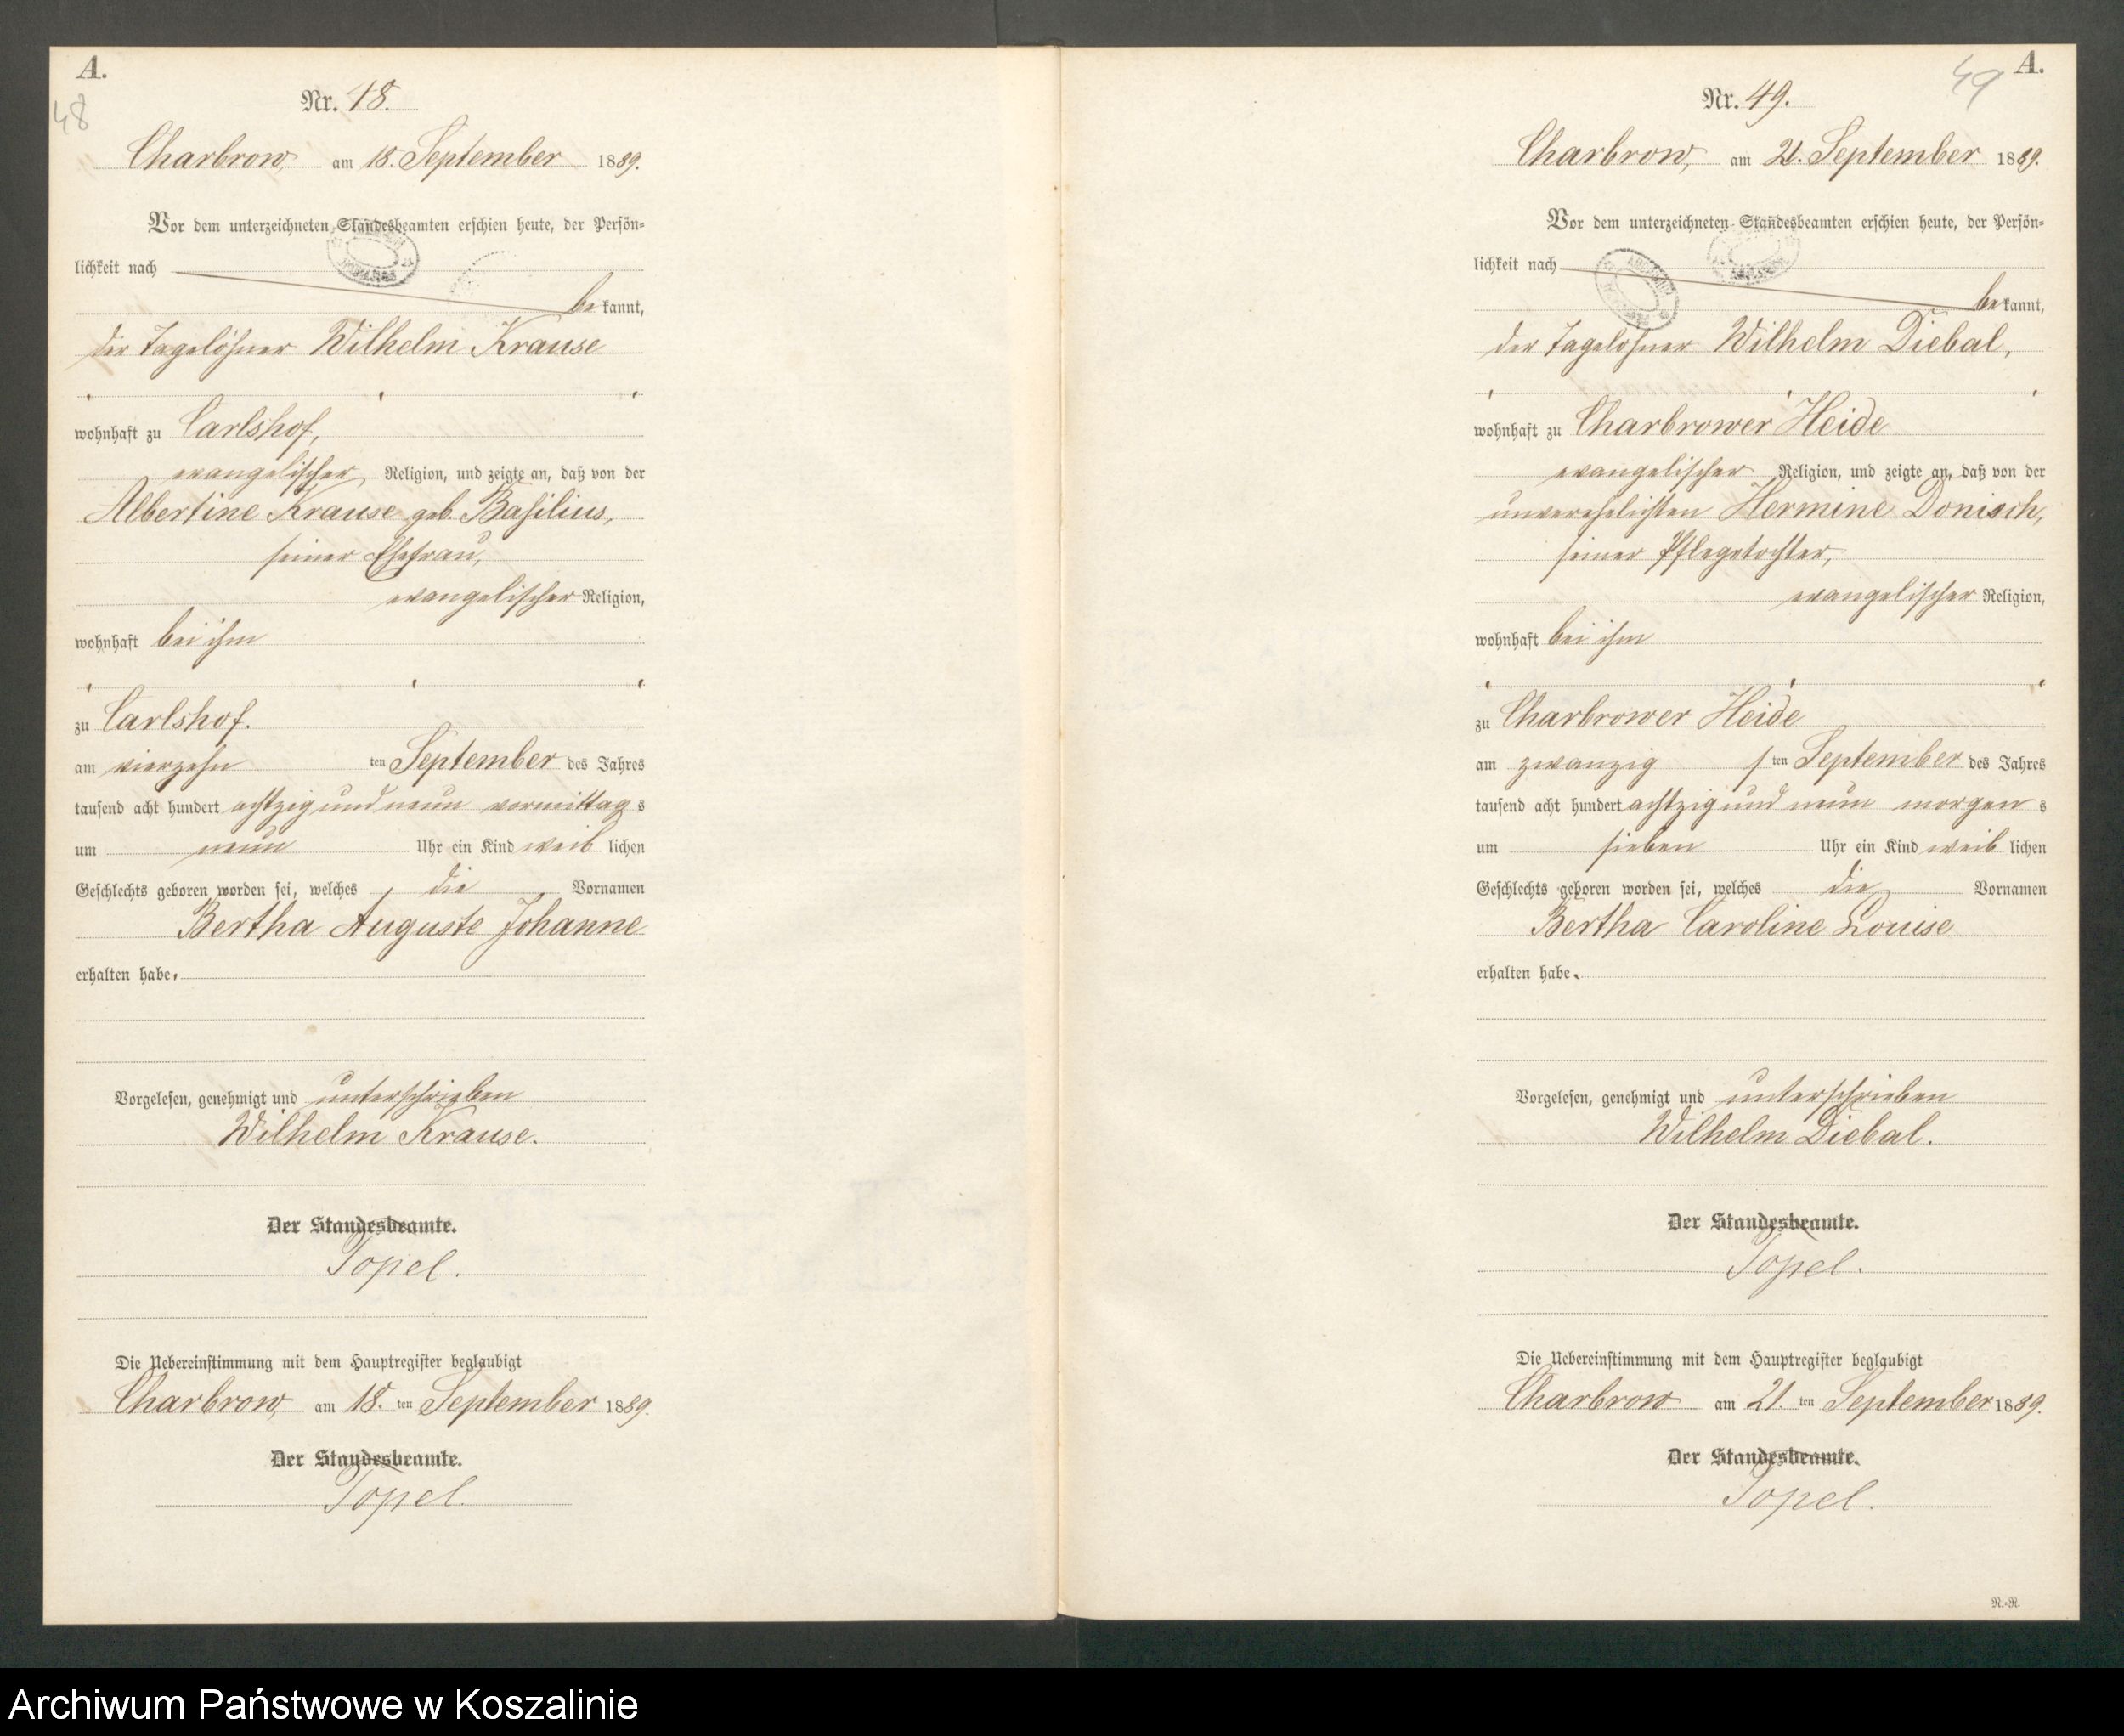 A.
48
Nr. 48.
Charbrow, am 18. September 1889.
Vor dem unterzeichneten Standesbeamten erschien heute, der Persön-
lichkeit nach
bekannt,
der Tagelöhner Wilhelm Krause
wohnhaft zu Carlshof,
evangelischer Religion, und zeigte an, daß von der
Albertine Krause geb. Basilius,
seiner Ehefrau,
evangelischer Religion,
wohnhaft bei ihm
zu Carlshof.
am vierzehn ten September des Jahres
tausend acht hundert achtzig und neun vormittags
um neun Uhr ein Kind weiblichen
Geschlechts geboren worden sei, welches die Vornamen
Bertha Auguste Johanne
erhalten habe.
Vorgelesen, genehmigt und unterschrieben
Wilhelm Krause.
Der Standesbeamte.
Topel.
Die Uebereinstimmung mit dem Hauptregister beglaubigt
Charbrow, am 18. ten September 1889.
Der Standesbeamte.
Topel.
A.
49
Nr. 49.
Charbrow, am 21. September 1889.
Vor dem unterzeichneten Standesbeamten erschien heute, der Persön-
lichkeit nach
bekannt,
der Tagelöhner Wilhelm Diebal,
wohnhaft zu Charbrower Heide
evangelischer Religion, und zeigte an, daß von der
unverehelichten Hermine Donisch,
seiner Pflegetochter,
evangelischer Religion,
wohnhaft bei ihm
zu Charbrower Heide
am zwanzig sten September des Jahres
tausend acht hundert achtzig und neun morgens
um sieben Uhr ein Kind weiblichen
Geschlechts geboren worden sei, welches die Vornamen
Bertha Caroline Louise
erhalten habe.
Vorgelesen, genehmigt und unterschrieben
Wilhelm Diebal.
Der Standesbeamte.
Topel.
Die Uebereinstimmung mit dem Hauptregister beglaubigt
Charbrow am 21. ten September 1889.
Der Standesbeamte.
Topel.
R.-R.
Archiwum Państwowe w Koszalinie